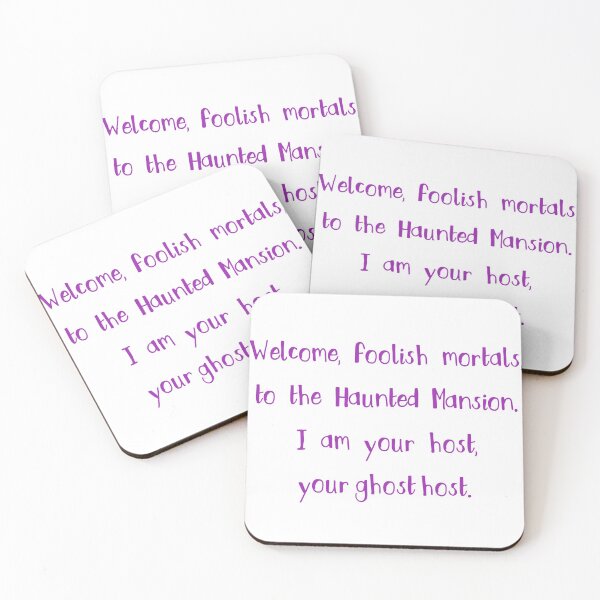 Welcome, foolish mortals
to the Haunted Mans
hos
Welcome, foolish mortals
to the Haunted Mansion.
I am your host,
Welcome, foolish mortals
to the Haunted Mansion.
I am your host
your ghost
Welcome, foolish mortals
to the Haunted Mansion.
I am your host,
your ghost host.